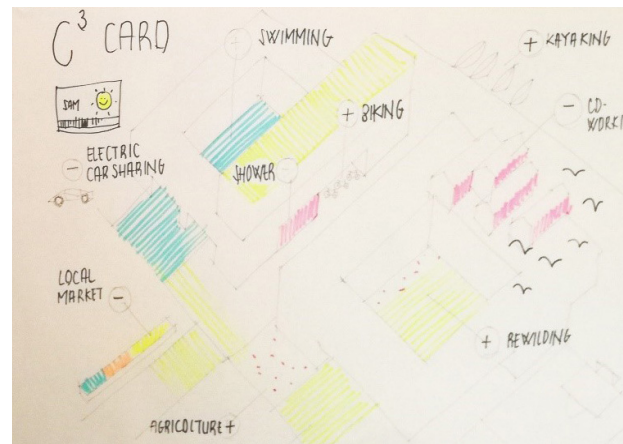 C³ CARD
SAM
− SWIMMING
+ KAYAKING
+ BIKING
− CO-
WORKI
− ELECTRIC
CAR SHARING
SHOWER −
LOCAL
MARKET −
+ REWILDING
AGRICOLTURE +